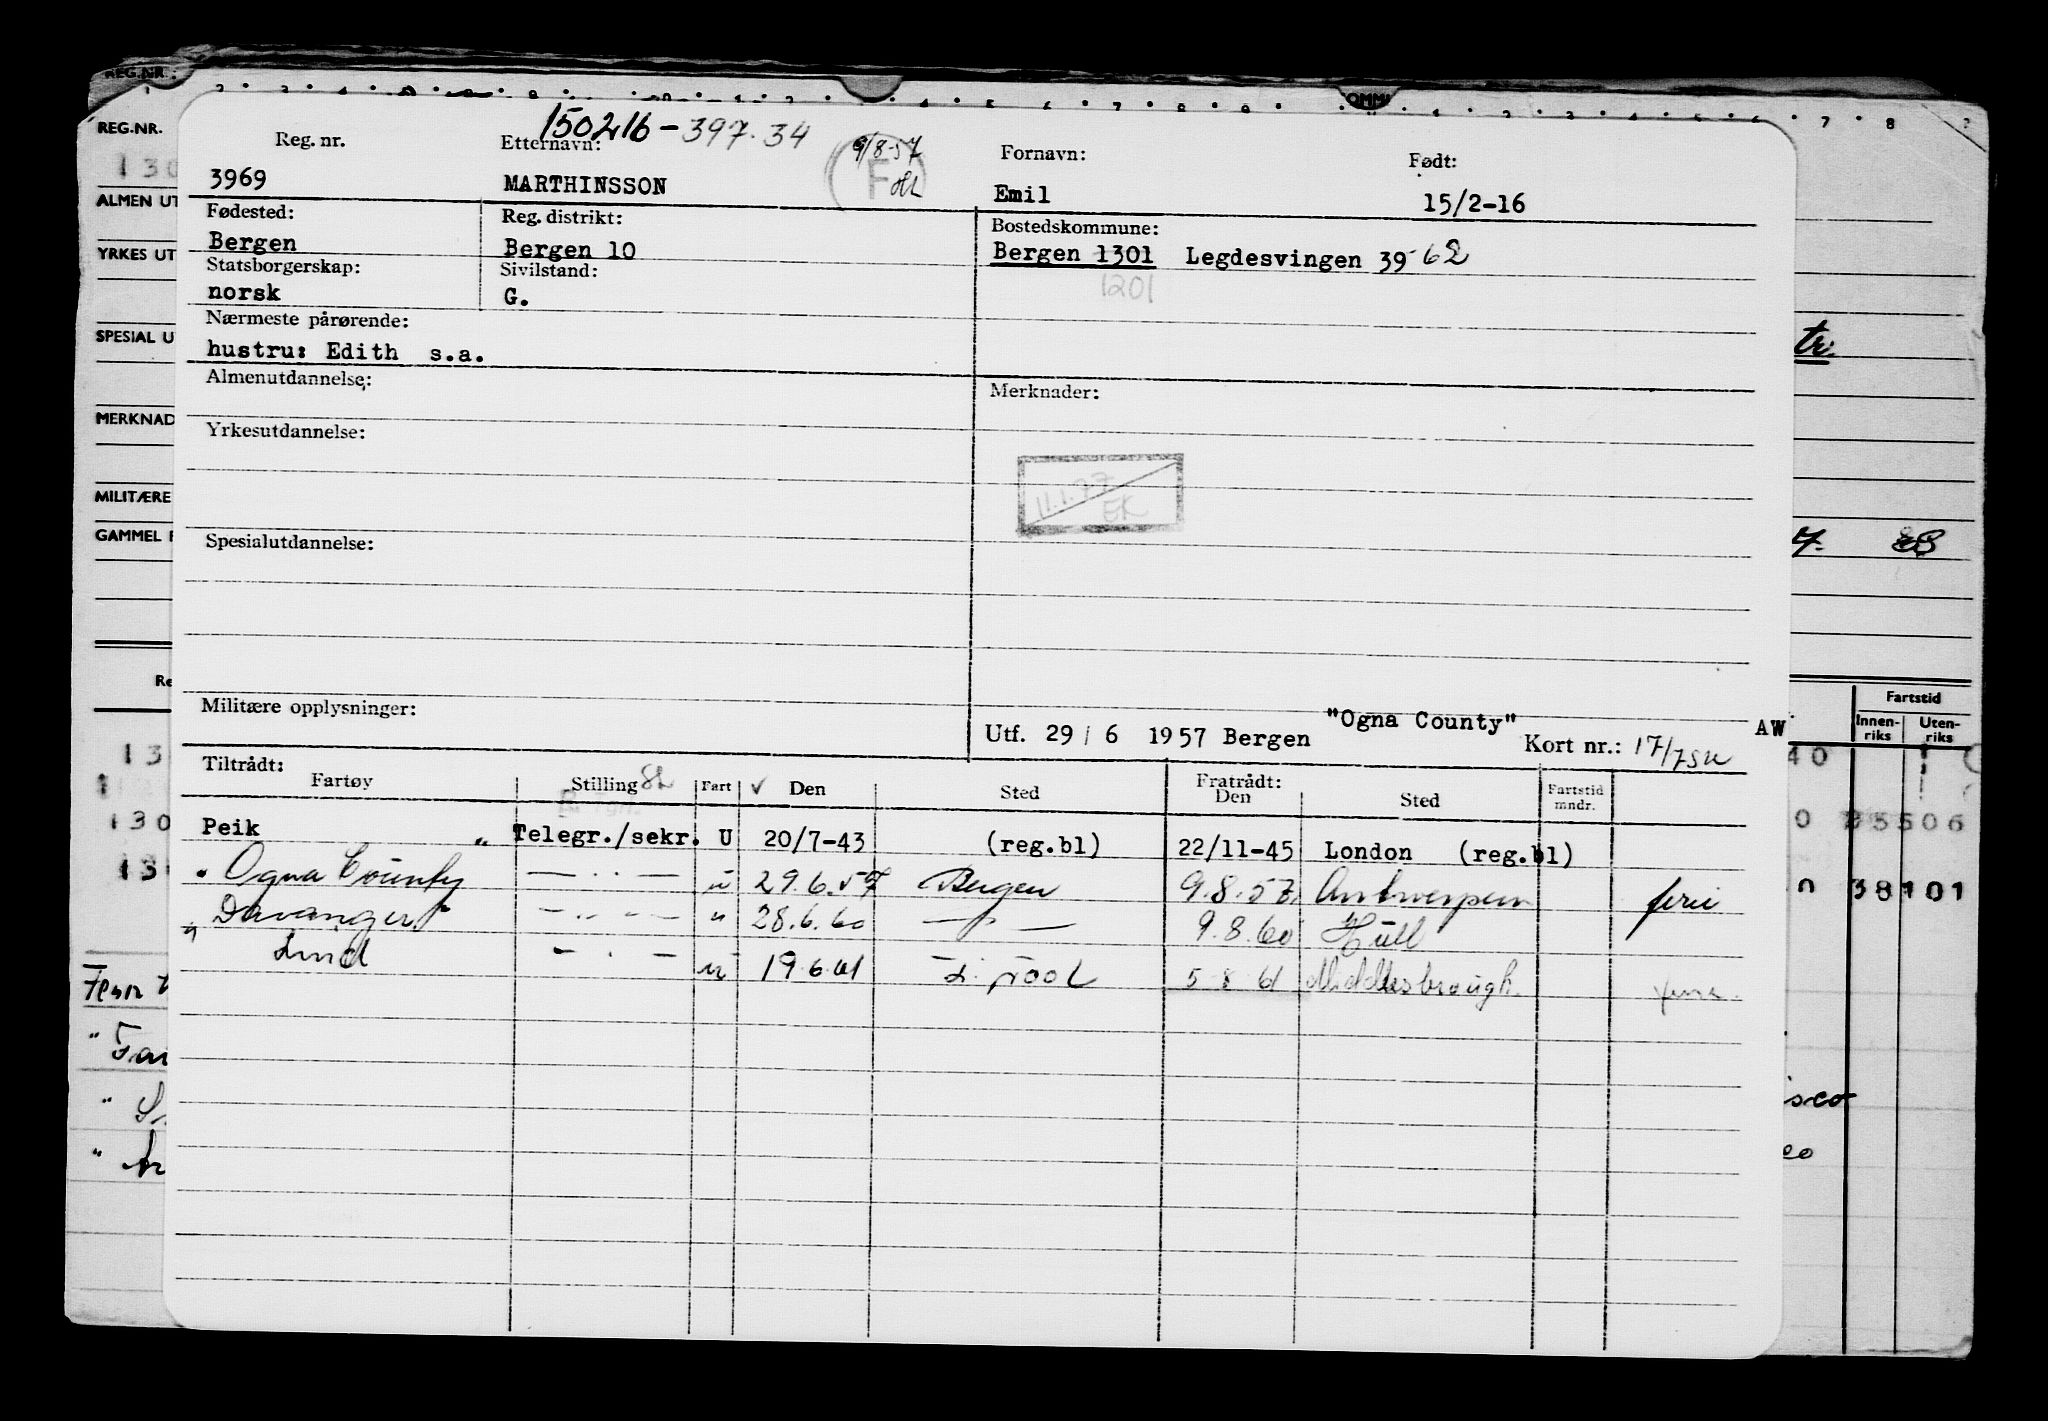 REG.NR.
REG.NR.
ALMEN UT
YRKES UT
SPESIAL U
MERKNAD
MILITÆRE
GAMMEL
150216-397.34
Reg. nr. Etternavn: Fornavn: Født:
9/8-57
F
3969 MARTHINSSON Emil 15/2-16
Fødested: Reg. distrikt: Bostedskommune:
Bergen Bergen 10 Bergen 1301 Legdesvingen 39-62
1201
Statsborgerskap: Sivilstand:
norsk G.
Nærmeste pårørende:
hustru: Edith s.a.
Almenutdannelse: Merknader:
Yrkesutdannelse:
11.1.77
EK
Spesialutdannelse:
Militære opplysninger:
Utf. 29/6 1957 Bergen "Ogna County" Kort nr.: AW
Tiltrådt: Fratrådt:
Fartøy Stilling Fart Den Sted Den Sted Fartstid mndr.
Peik Telegr./sekr. U 20/7-43 (reg.bl) 22/11-45 London (reg.bl)
" Ogna County — " — u 29.6.57 Bergen 9.8.57 Antwerpen ferie
Davanger — " — " 28.6.60 — " — 9.8.60 Hull
" Lind — " — u 19.6.61 L.pool 5-8-61 Middlesbrough
Fartstid
Innen-riks Uten-riks
40
35506
38101
isco